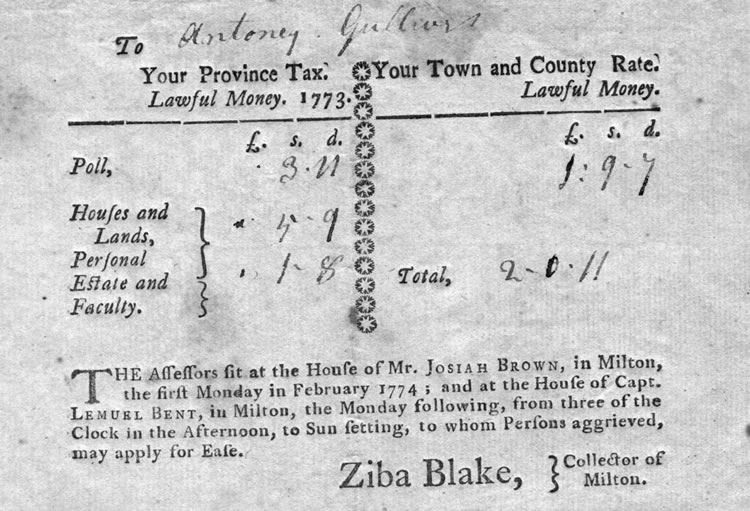 To Antoney Gullivers
Your Province Tax. Your Town and County Rate.
Lawful Money. 1773. Lawful Money.
£. s. d. £. s. d.
Poll, 3-11 1: 9-7
Houſes and
Lands, 5-9
Perſonal 1-8 Total, 2-0-11
Eſtate and
Faculty.
THE Aſſeſſors ſit at the Houſe of Mr. JOSIAH BROWN, in Milton,
the firſt Monday in February 1774; and at the Houſe of Capt.
LEMUEL BENT, in Milton, the Monday following, from three of the
Clock in the Afternoon, to Sun ſetting, to whom Perſons aggrieved,
may apply for Eaſe.
Ziba Blake, Collector of
Milton.